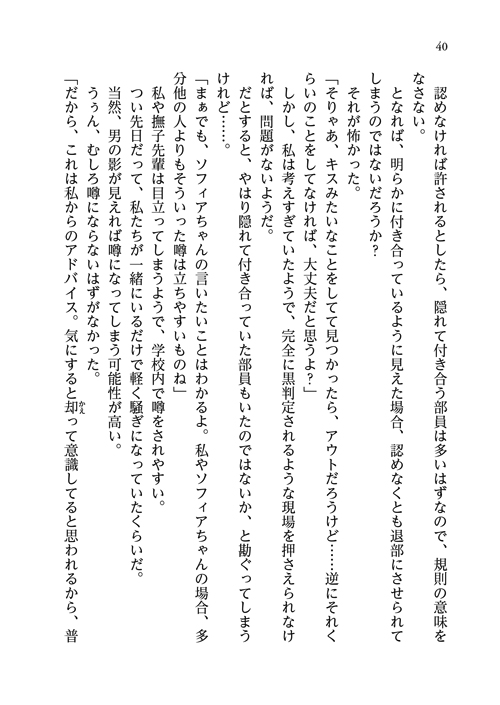 40
　認めなければ許されるとしたら、隠れて付き合う部員は多いはずなので、規則の意味を
なさない。
　となれば、明らかに付き合っているように見えた場合、認めなくとも退部にさせられて
しまうのではないだろうか？
　それが怖かった。
「そりゃあ、キスみたいなことをしてて見つかったら、アウトだろうけど……逆にそれく
らいのことをしてなければ、大丈夫だと思うよ？」
　しかし、私は考えすぎていたようで、完全に黒判定されるような現場を押さえられなけ
れば、問題がないようだ。
　だとすると、やはり隠れて付き合っていた部員もいたのではないか、と勘ぐってしまう
けれど……。
「まぁでも、ソフィアちゃんの言いたいことはわかるよ。私やソフィアちゃんの場合、多
分他の人よりもそういった噂は立ちやすいものね」
　私や撫子先輩は目立ってしまうようで、学校内で噂をされやすい。
　つい先日だって、私たちが一緒にいるだけで軽く騒ぎになっていたくらいだ。
　当然、男の影が見えれば噂になってしまう可能性が高い。
　うぅん、むしろ噂にならないはずがなかった。
「だから、これは私からのアドバイス。気にすると却かえって意識してると思われるから、普